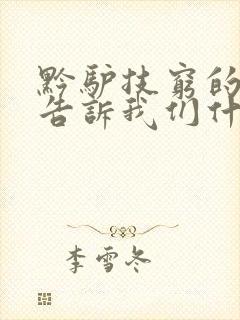 黔驴技穷的
告訴我们什
李雪冬